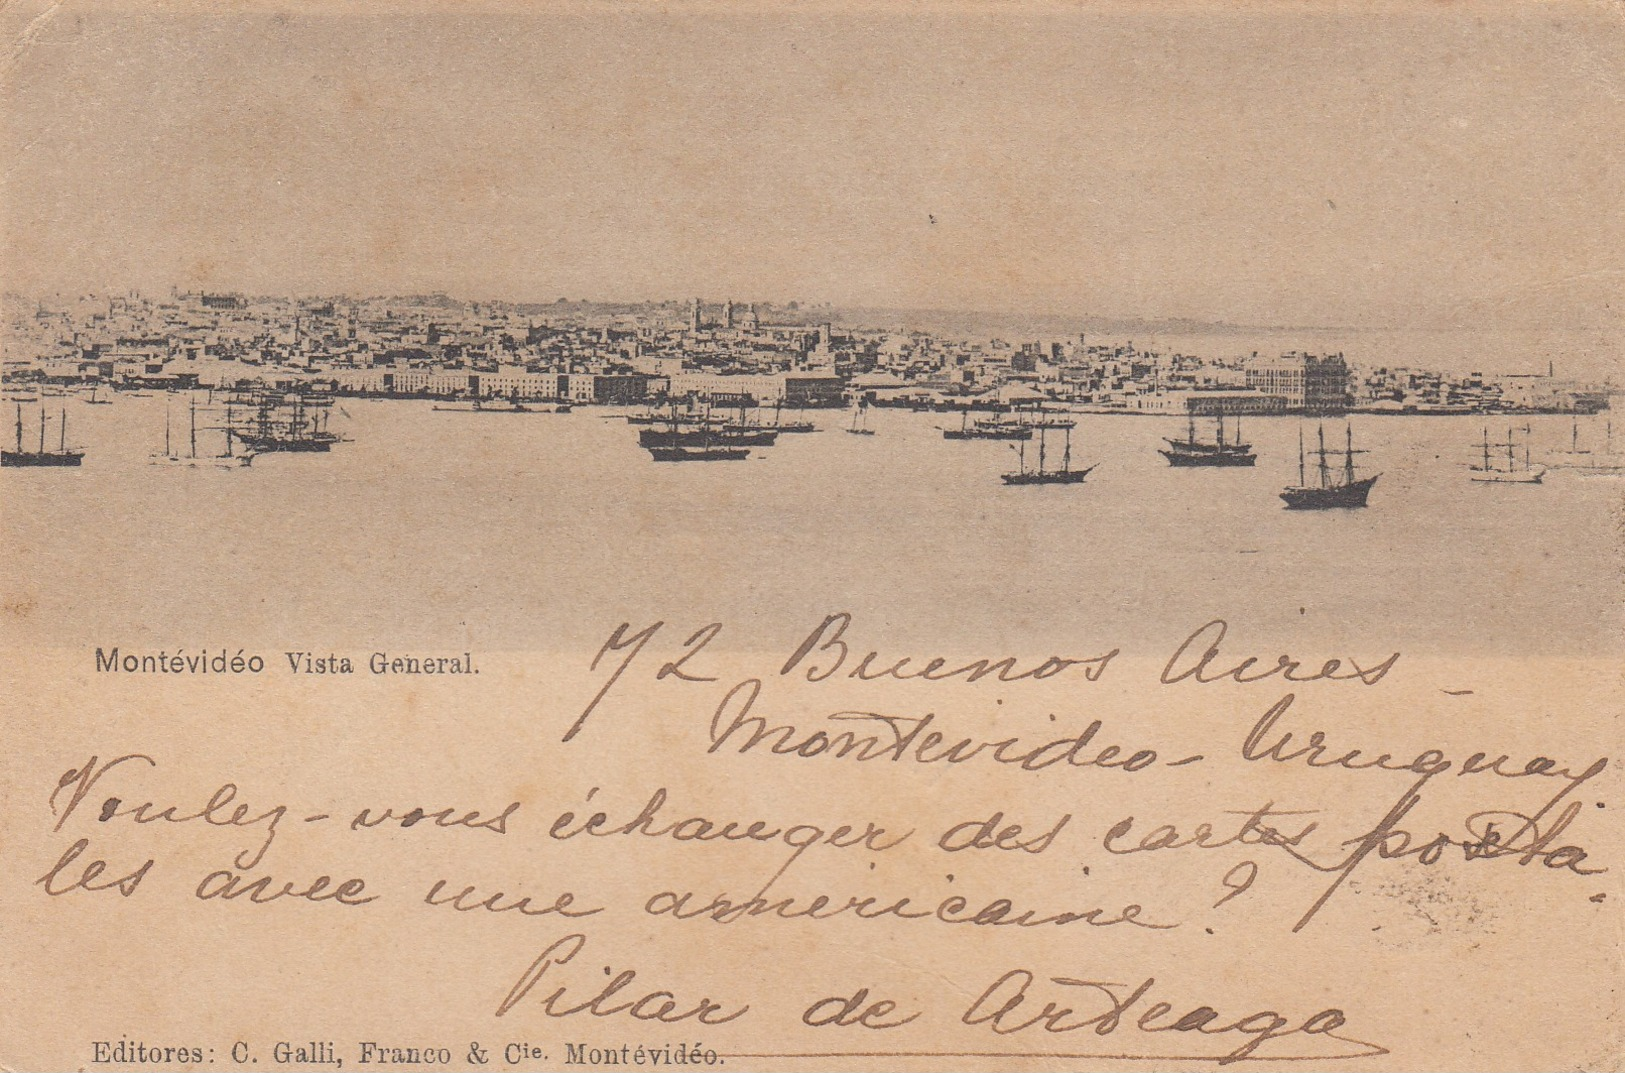 Montévidéo Vista General.
72 Buenos Aires -
Montevideo - Uruguay
Voulez-vous échanger des cartes posta-
les avec une américaine ?
Pilar de Arteaga
Editores: C. Galli, Franco & Cie. Montévidéo.